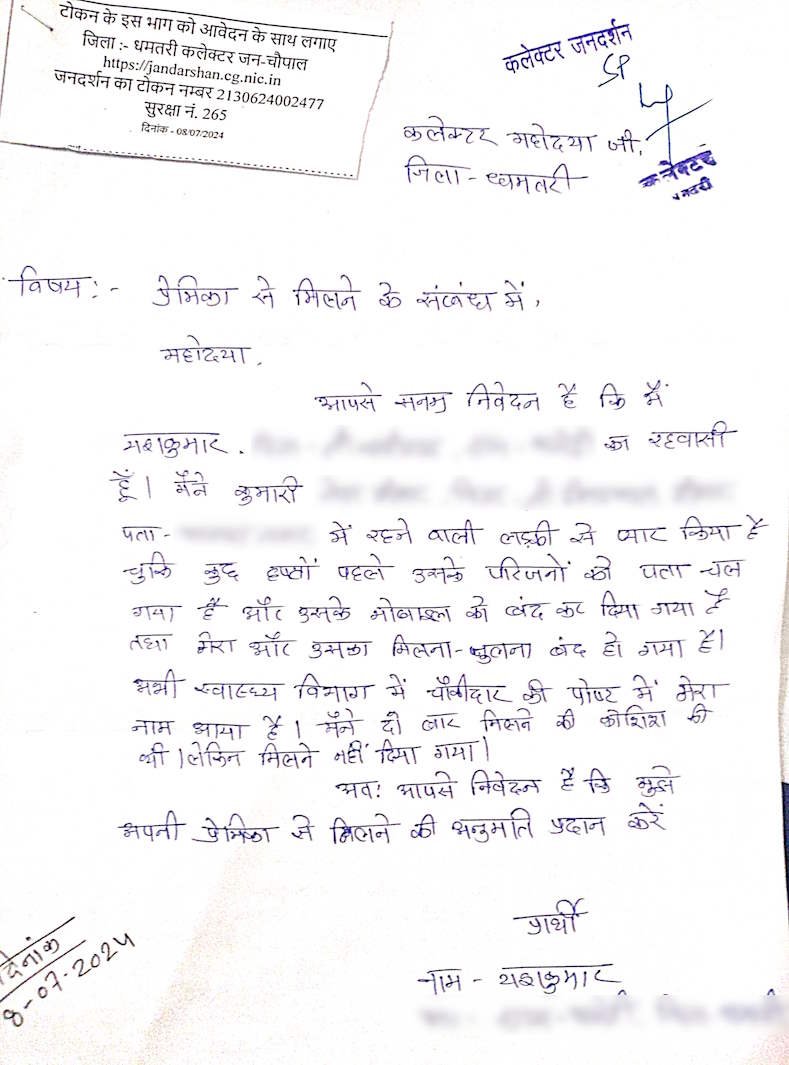 टोकन के इस भाग को आवेदन के साथ लगाए
जिला :- धमतरी कलेक्टर जन-चौपाल
https://jandarshan.cg.nic.in
जनदर्शन का टोकन नम्बर 2130624002477
सुरक्षा नं. 265
दिनांक - 08/07/2024
कलेक्टर जनदर्शन
कलेक्टर महोदया जी,
जिला - धमतरी
कलेक्टर
धमतरी
विषय :- प्रेमिका से मिलने के संबंध में,
महोदया,
आपसे सनम्र निवेदन है कि मैं
यशकुमार. का रहवासी
हूँ। मैंने कुमारी
पता - में रहने वाली लड़की से प्यार किया है
चुकि कुछ हफ्तों पहले उसके परिजनों को पता चल
गया है और उसके मोबाइल को बंद कर दिया गया है
तथा मेरा और उसका मिलना-जुलना बंद हो गया है।
अभी स्वास्थ्य विभाग में चौकीदार की पोस्ट में मेरा
नाम आया है। मैंने दो बार मिलने की कोशिश की
थी। लेकिन मिलने नहीं दिया गया।
अतः आपसे निवेदन है कि मुझे
अपनी प्रेमिका से मिलने की अनुमति प्रदान करें
प्रार्थी
नाम - यशकुमार
दिनांक
8-07-2024